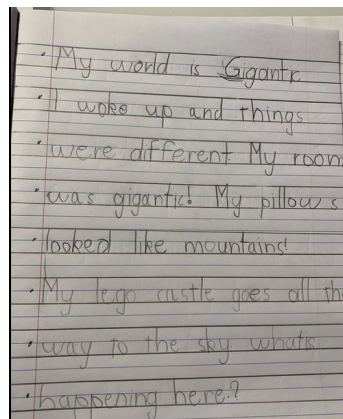 · My world is Gigantic
· I woke up and things
· were different. My room
· was gigantic! My pillows
· looked like mountains!
· My lego castle goes all the
· way to the sky. whats
· happening here.?